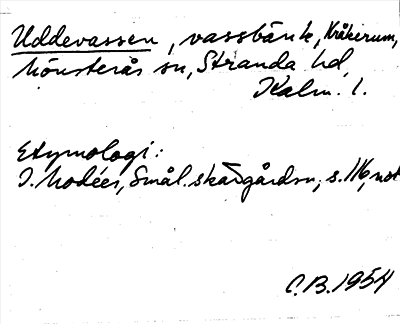 Uddevassen, vassbänk, Kråkerum,
Mönsterås sn, Stranda hd,
Kalm. l.
Etymologi:
I. Modéer, Smål. skärgårdsn., s. 116, not
C.B. 1954